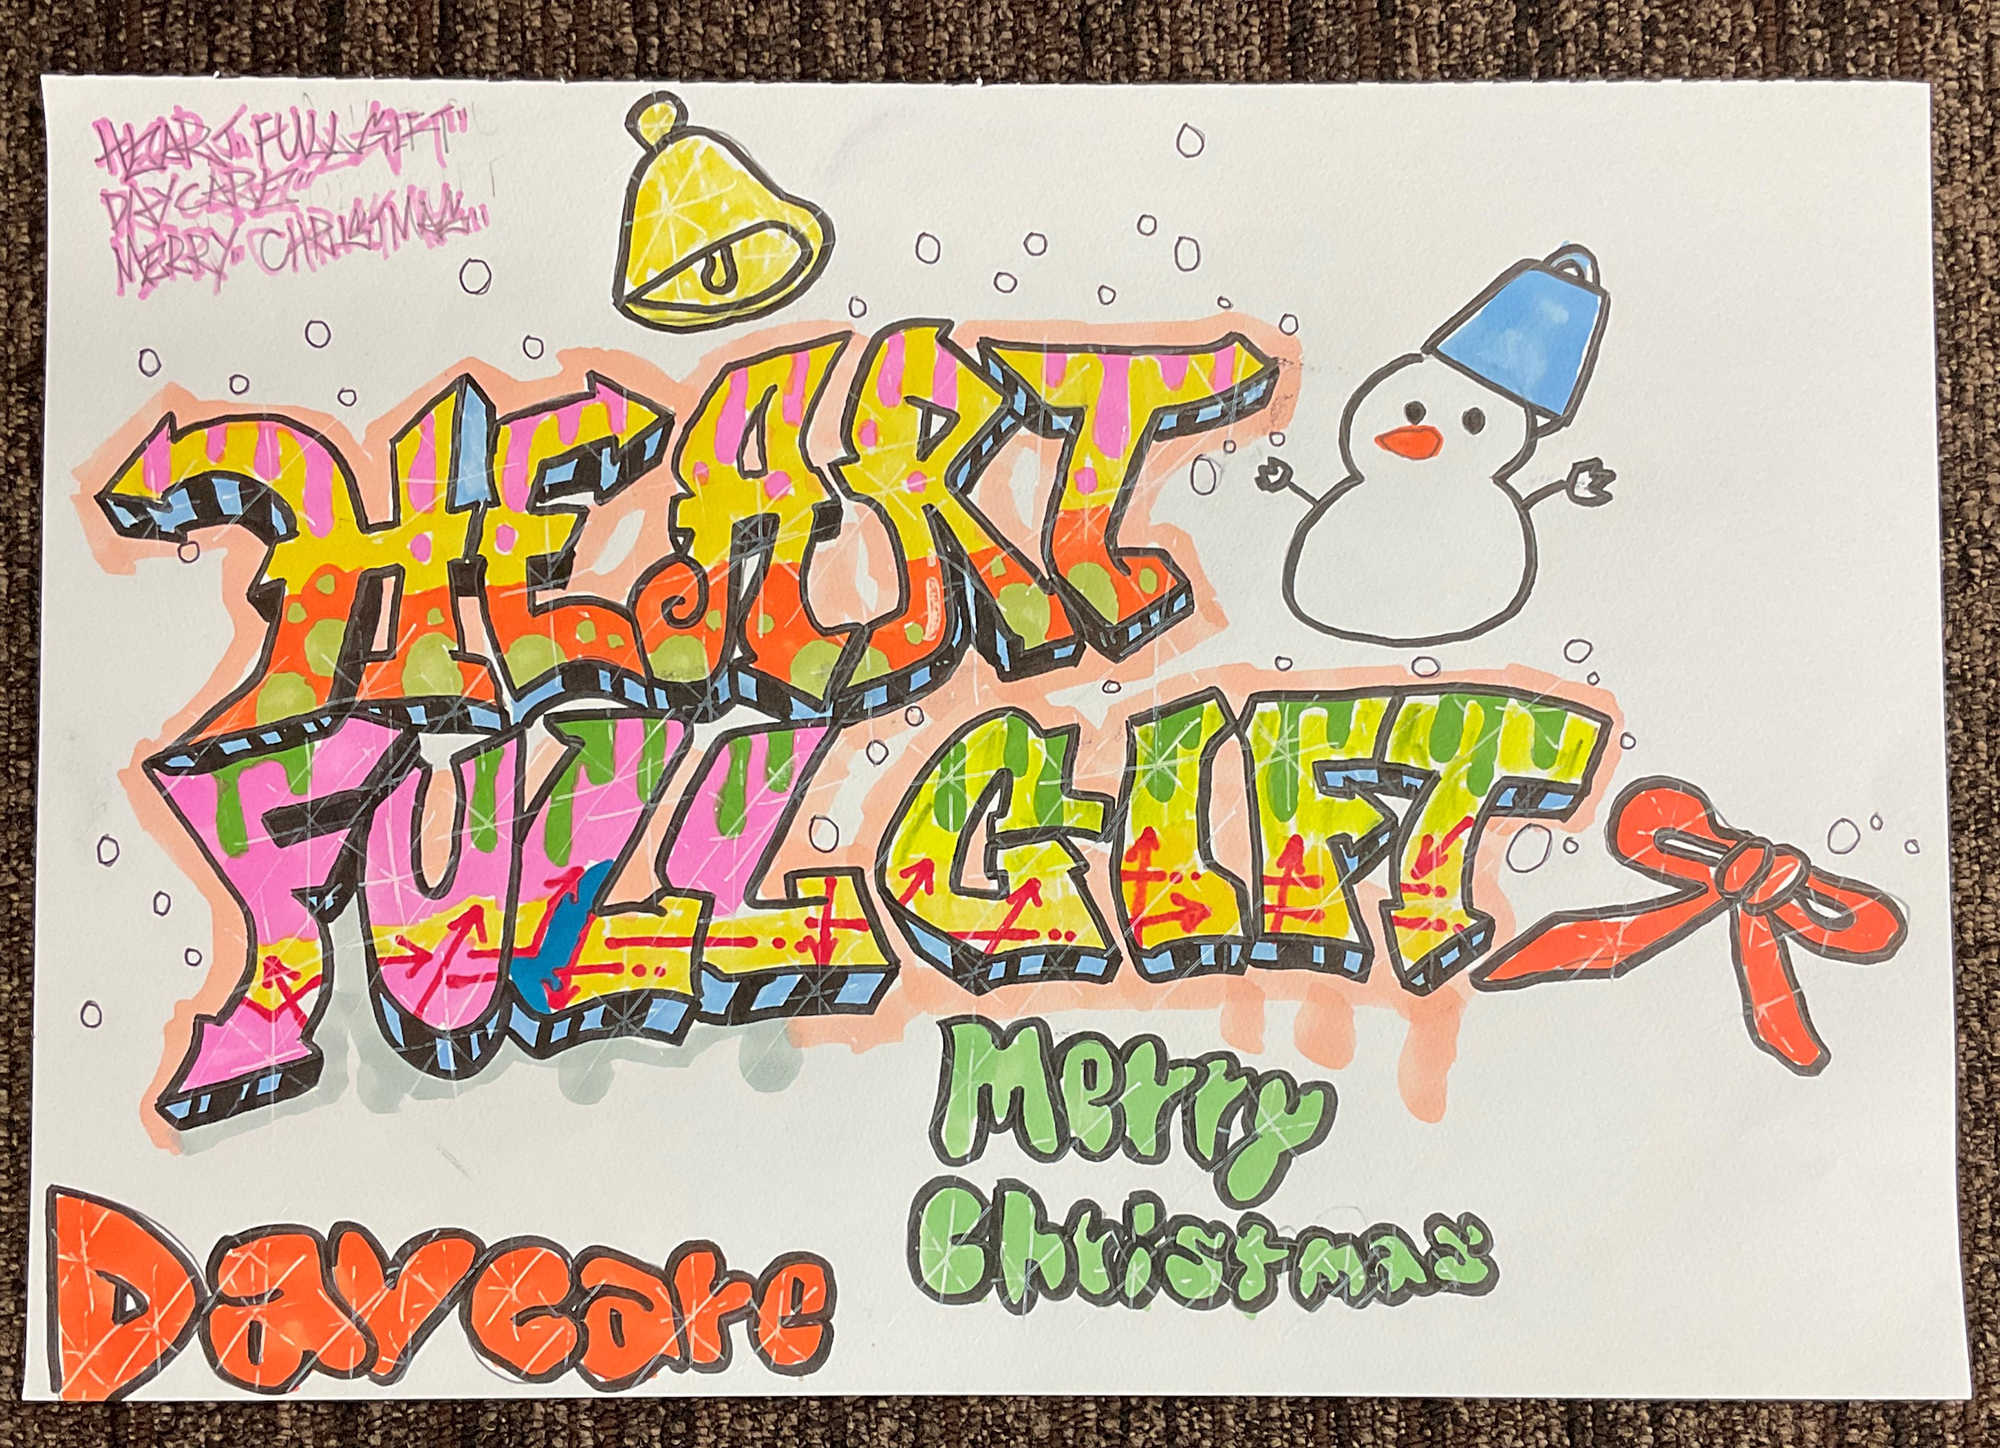 HEART FULL GIFT"
DAYCARE"
MERRY CHRISTMAS"
HEART
FULL GIFT
Merry
Christmas
Daycare